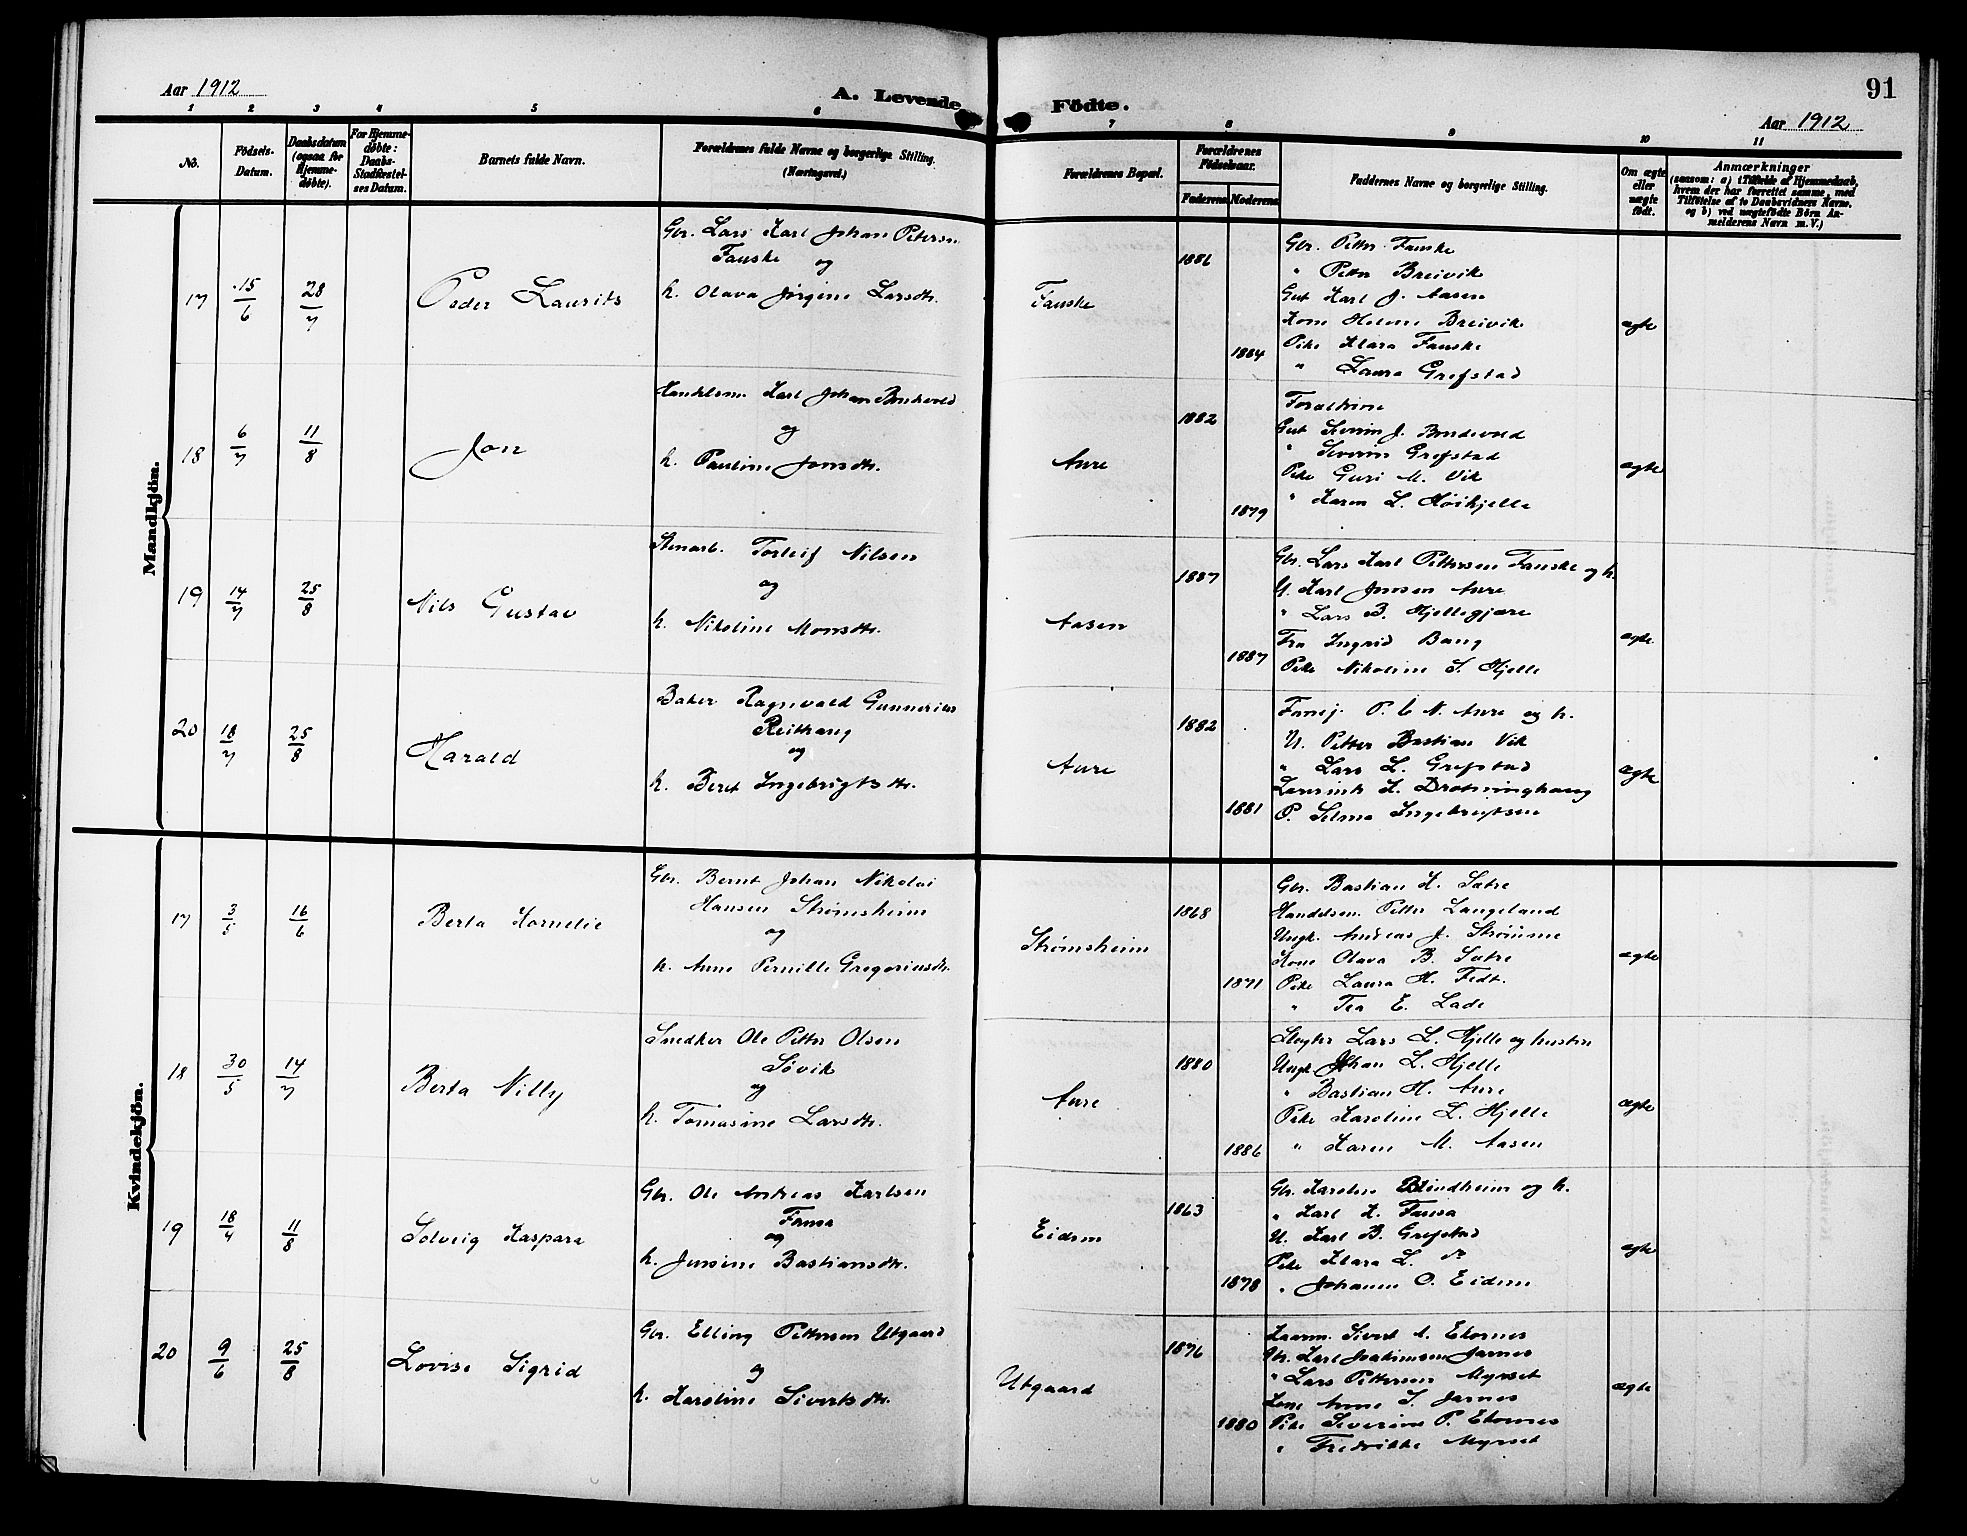 Aar 1912
A. Levende Födte.
91
Aar 1912
1 2 3 4 5 6 7 8 9 10 11
No.
Födsels-Datum.
Daabsdatum (ogsaa for Hjemme-døbte).
For Hjemme-døbte: Daabs-Stadfæstel-ses Datum.
Barnets fulde Navn.
Forældrenes fulde Navne og borgerlige Stilling. (Næringsvei.)
Forældrenes Bopæl.
Forældrenes Födselsaar.
Faderens Moderens
Faddernes Navne og borgerlige Stilling.
Om ægte eller uægte født.
Anmærkninger
(saasom: a) i Tilfælde af Hjemmedaab, hvem der har forrettet samme, med Tilføielse af to Daabsvidners Navne, og b) ved uægtefödte Börn An-melderens Navn m.V.)
Mandkjön.
17 15/6 28/7 Peder Laurits
Gbr. Lars Karl Johan Petersen
Fauske og
h. Olava Jørgine Larsdtr.
Fauske
1886
1884
Gbr. Petter Fauske
" Petter Breivik
Gut Karl J. Aasen
Kone Helene Breivik
Pike Klara Fauske
" Laura Grefstad
ægte
18 6/7 11/8 Jon
Handelsm. Karl Johan Brudevold
og
h. Pauline Jonsdtr.
Aure
1882
1879
Forældrene
Gut Severin J. Brudevold
" Severin Grefstad
Pike Guri M. Vik
" Karen L. Høihjelle
ægte
19 14/7 25/8 Nils Gustav
Stenarb. Torleif Nilsen
og
h. Nikoline Monsdtr.
Aasen
1887
1887
Gbr. Lars Karl Pettersen Fauske og h.
U. Karl Jensen Aure
" Lars B. Hjellegjære
Fru Ingrid Bang
Pike Nikoline S. Hjelle
ægte
20 18/7 25/8 Harald
Baker Ragnvald Gunnerius
Reithaug
og
h. Beret Ingebrigtsdtr.
Aure
1882
1881
P. C. N. Aure og h.
U. Petter Bastian Vik
" Lars L. Grefstad
L. Drotninghaug
P. Selma Ingebrigtsen
ægte
Kvindekjön.
17 3/5 16/6 Berta Kornelie
Gbr. Bernt Johan Nikolai
Hansen Strømsheim
og
h. Anne Pernille Gregoriusdtr.
Strømsheim
1868
1871
Gbr. Bastian K. Sætre
Handelsm. Petter Langeland
Ungk. Andreas J. Strømme
Kone Olava B. Sætre
Pike Laura H. Fedt.
" Tea E. Lade
ægte
18 30/5 14/7 Berta Nilly
Snedker Ole Petter Olsen
Søvik
og
h. Tomasine Larsdtr.
Aure
1880
1886
Lars L. Hjelle og hustru
Ungk. Johan L. Hjelle
" Bastian H. Aure
Pike Karoline L. Hjelle
" Karen M. Aasen
ægte
19 18/4 11/8 Solveig Kaspara
Gbr. Ole Andreas Karlsen
Famsa
og
h. Jensine Bastiansdtr.
Eidem
1863
1878
Gbr. Karolus Blindheim og h.
" Karl K. Famsa
U. Karl B. Grefstad
Pike Klara L. do
" Johanne O. Eidem
ægte
20 9/6 25/8 Lovise Sigrid
Gbr. Elling Pettersen Utgaard
og
h. Karoline Sivertsdtr.
Utgaard
1876
1880
Kaarm. Sivert A. Ekornes
Gbr. Karl Joakimsen Jarnes
" Lars Pettersen Myrset
Kone Anne S. Jarnes
Pike Severine P. Ekornes
" Fredrikke Myrset
ægte